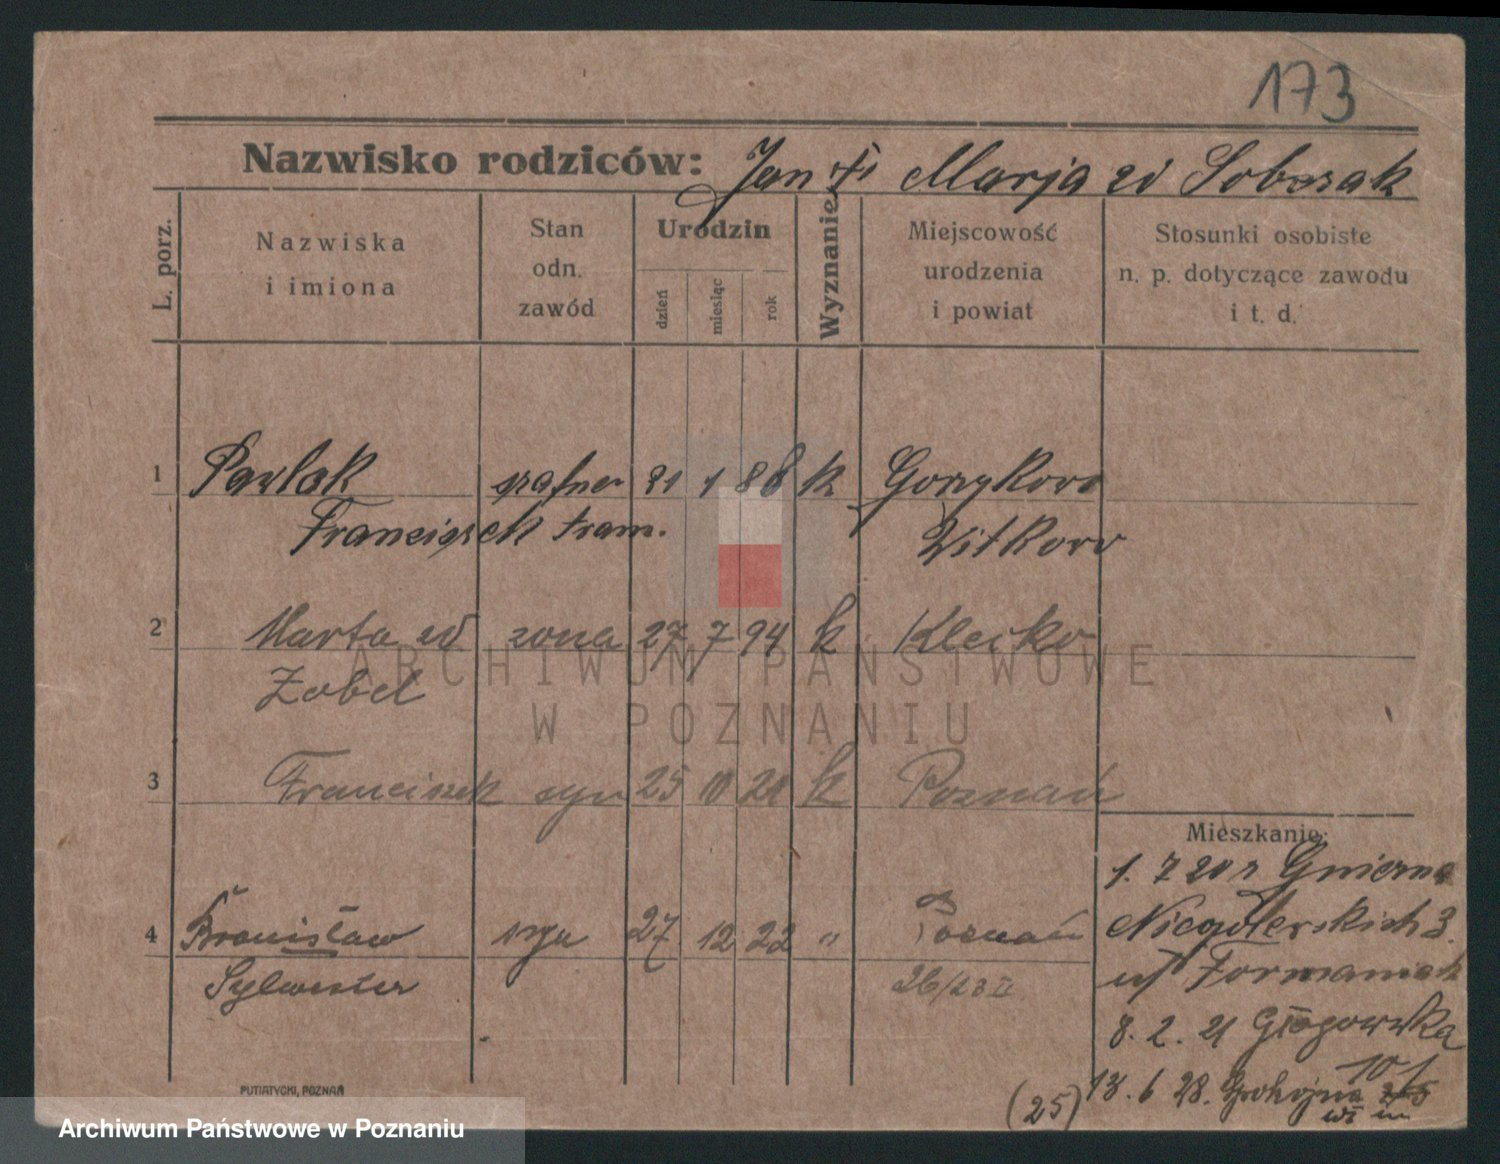 173
Nazwisko rodziców: Jan i Marja zd Sobczak
L. porz.
Nazwiska i imiona
Stan odn. zawód
Urodzin
dzień
miesiąc
rok
Wyznanie
Miejscowość urodzenia i powiat
Stosunki osobiste n. p. dotyczące zawodu i t. d.
1 Pawlak szafner 31 1 88 k Gorzykowo
Franciszek tram. Witkowo
2 Marta zd zona 27 7 94 k Klecko
Zobel
3 Franciszek syn 25 10 20 k Poznań
4 Bronisław syn 27 12 22 " Poznań
Sylwester 26/23 II
Mieszkanie:
1. 7 20 z Gniezna
Niegolewskich 3.
u/ Formaniak
8. 2. 21 Głogowska
101
(25) 13. 6 28. Spokojna
PUTIATYCKI, POZNAŃ
ARCHIWUM PAŃSTWOWE
W POZNANIU
Archiwum Państwowe w Poznaniu